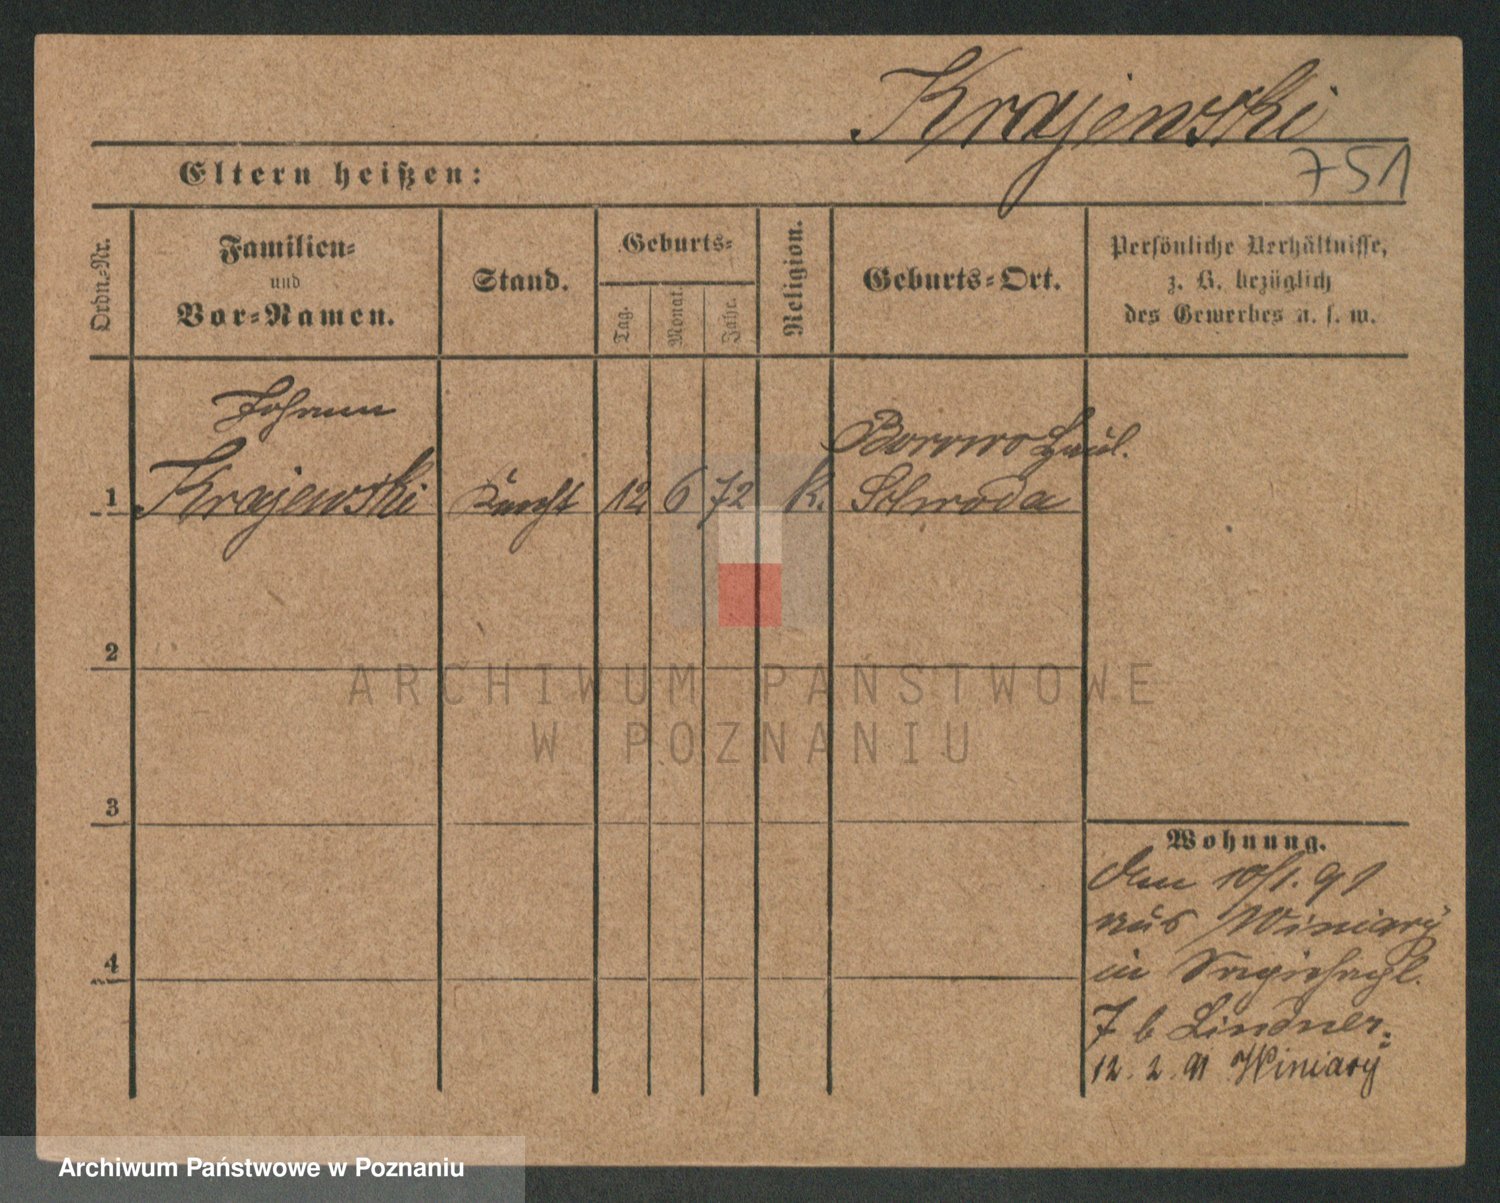 Krajewski
751
Eltern heißen:
Ordn.-Nr.
Familien-
und
Vor-Namen.
Stand.
Geburts-
Tag.
Monat.
Jahr.
Religion.
Geburts-Ort.
Persönliche Verhältnisse,
z. B. bezüglich
des Gewerbes u. s. w.
Johann
Borowo Haul.
1 Krajewski Knecht 12 6 72 k. Schroda
2
3
4
Wohnung.
den 10/1. 91
aus Winiary
in
7 b Lindner.
12. 2. 91 Winiary
ARCHIWUM PAŃSTWOWE
W POZNANIU
Archiwum Państwowe w Poznaniu